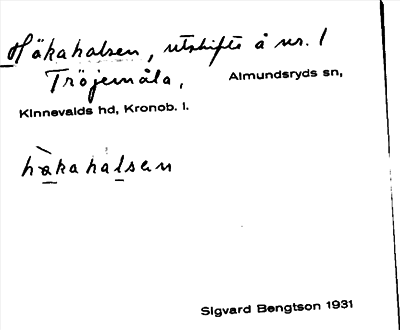 Håkahalsen, utskifte å nr. 1
Tröjemåla,
Almundsryds sn,
Kinnevalds hd, Kronob. l.
hàkahalsen
Sigvard Bengtson 1931